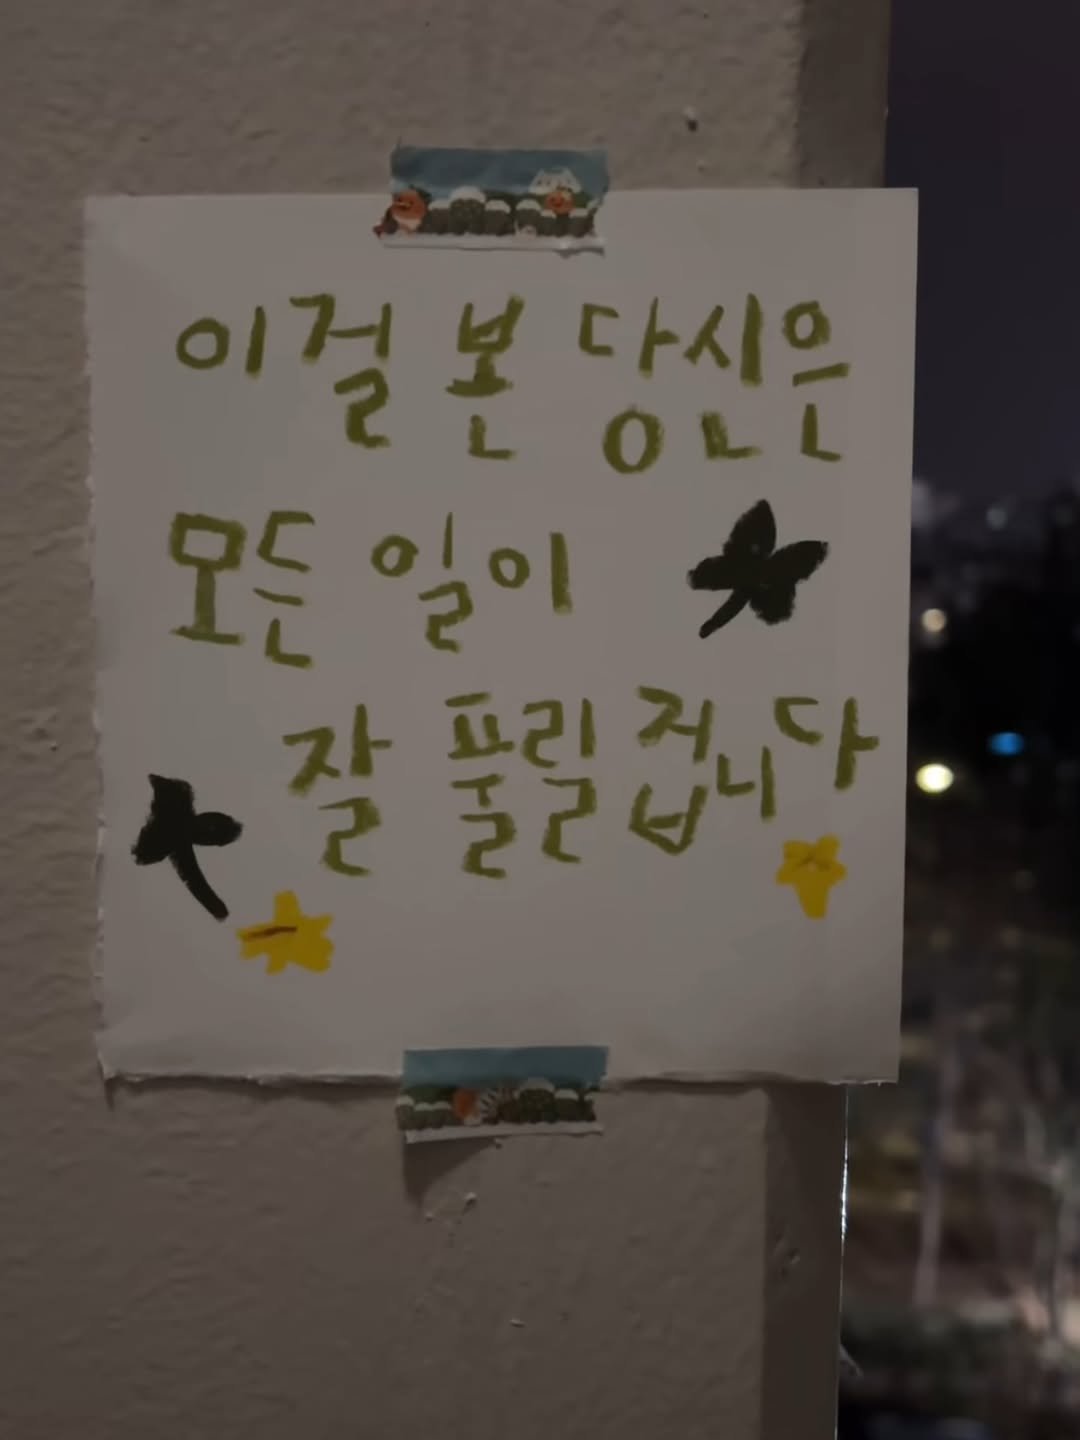 이걸 본 당신은
모든 일이
잘 풀릴 겁니다